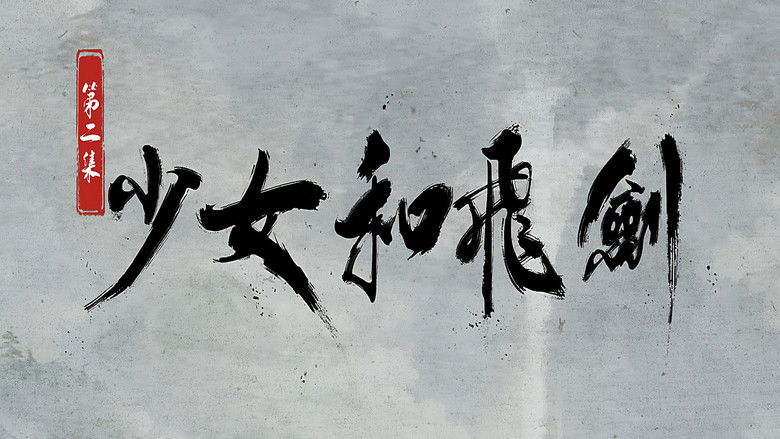 第二集
少女和飛劍